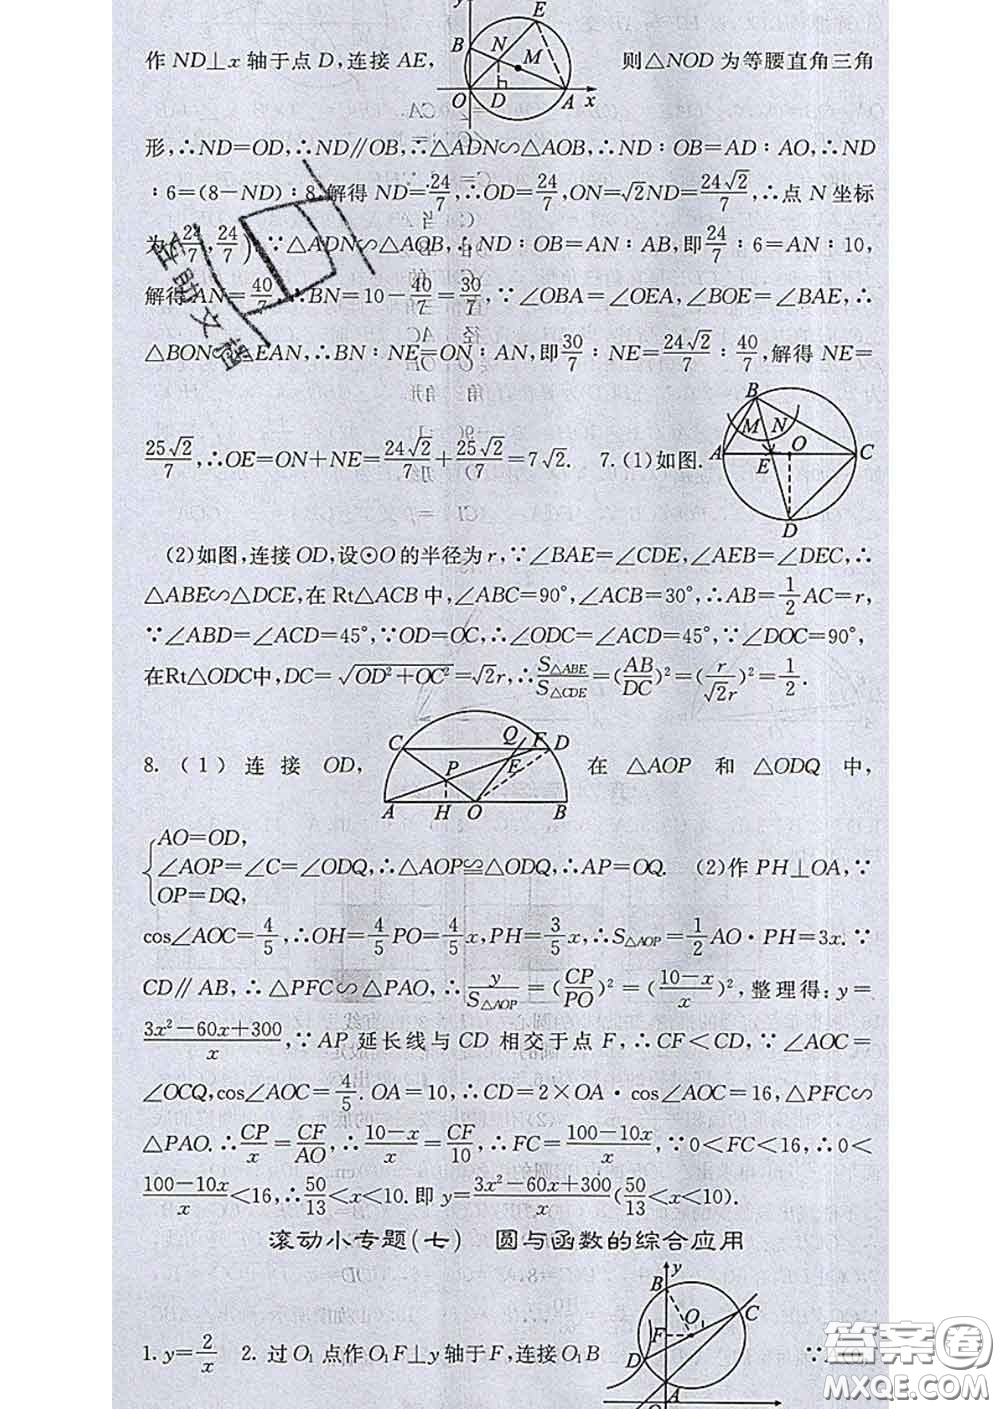 作 ND⊥x 轴于点 D,连接 AE, 则△NOD 为等腰直角三角
y E B N M O D A x
形,∴ND=OD,∴ND∥OB,∴△ADN∽△AOB,∴ND∶OB=AD∶AO,∴ND
∶6=(8−ND)∶8,解得 ND=24/7,∴OD=24/7,ON=√2ND=24√2/7,∴点 N 坐标
为(24/7,24/7).∵△ADN∽△AOB,∴ND∶OB=AN∶AB,即24/7∶6=AN∶10,
解得 AN=40/7,∴BN=10−40/7=30/7,∵∠OBA=∠OEA,∠BOE=∠BAE,∴
△BON∽△EAN,∴BN∶NE=ON∶AN,即30/7∶NE=24√2/7∶40/7,解得 NE=
25√2/7,∴OE=ON+NE=24√2/7+25√2/7=7√2. 7.(1)如图.
B M N A O C E D
(2)如图,连接 OD,设⊙O 的半径为 r,∵∠BAE=∠CDE,∠AEB=∠DEC,∴
△ABE∽△DCE,在 Rt△ACB 中,∠ABC=90°,∠ACB=30°,∴AB=1/2AC=r,
∵∠ABD=∠ACD=45°,∵OD=OC,∴∠ODC=∠ACD=45°,∴∠DOC=90°,
在Rt△ODC中,DC=√(OD²+OC²)=√2r,∴S△ABE/S△CDE=(AB/DC)²=(r/√2r)²=1/2.
8.(1)连接 OD, 在 △AOP 和 △ODQ 中,
C Q F D P E A H O B
{AO=OD,
∠AOP=∠C=∠ODQ,∴△AOP≌△ODQ,∴AP=OQ. (2)作 PH⊥OA,∵
OP=DQ,
cos∠AOC=4/5,∴OH=4/5PO=4/5x,PH=3/5x,∴S△AOP=1/2AO·PH=3x.∵
CD∥AB,∴△PFC∽△PAO,∴y/S△AOP=(CP/PO)²=((10−x)/x)²,整理得:y=
(3x²−60x+300)/x,∵AP 延长线与 CD 相交于点 F,∴CF<CD,∵∠AOC=
∠OCQ,cos∠AOC=4/5.OA=10,∴CD=2×OA·cos∠AOC=16,△PFC∽
△PAO.∴CP/PO=CF/AO,∴(10−x)/x=CF/10,∴FC=(100−10x)/x,∵0<FC<16,∴0<
(100−10x)/x<16,∴50/13<x<10.即 y=(3x²−60x+300)/x(50/13<x<10).
滚动小专题(七) 圆与函数的综合应用
1.y=2/x 2.过 O₁ 点作 O₁F⊥y 轴于 F,连接 O₁B
y B C O₁ F D A
互助文档
答案圈
MXQE.COM